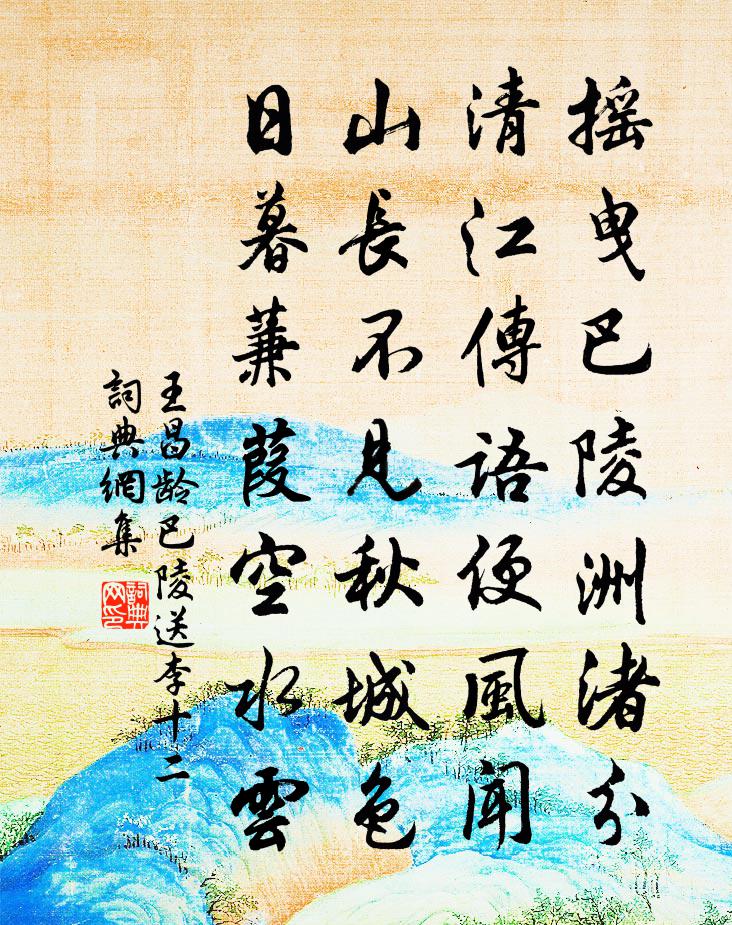 搖曳巴陵洲渚分
清江傳語便風聞
山長不見秋城色
日暮蒹葭空水雲
王昌齡巴陵送李十二
詞典網集
詞典網印